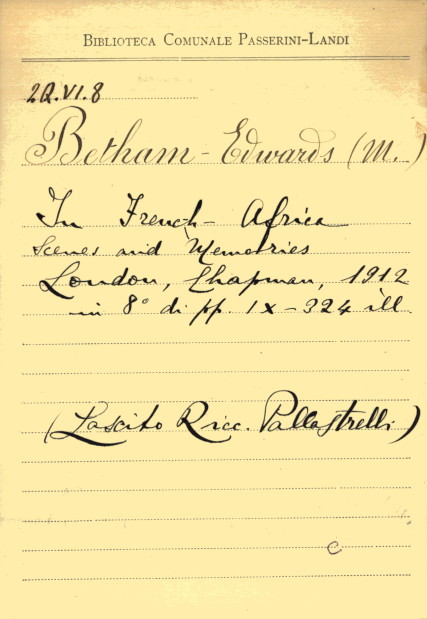 BIBLIOTECA COMUNALE PASSERINI-LANDI
2Q.VI.8
Betham-Edwards (M.)
In French-Africa
Scenes and Memories
London, Chapman, 1912
in 8° di pp. IX-324 ill
(Lascito Ricc. Pallastrelli)
C